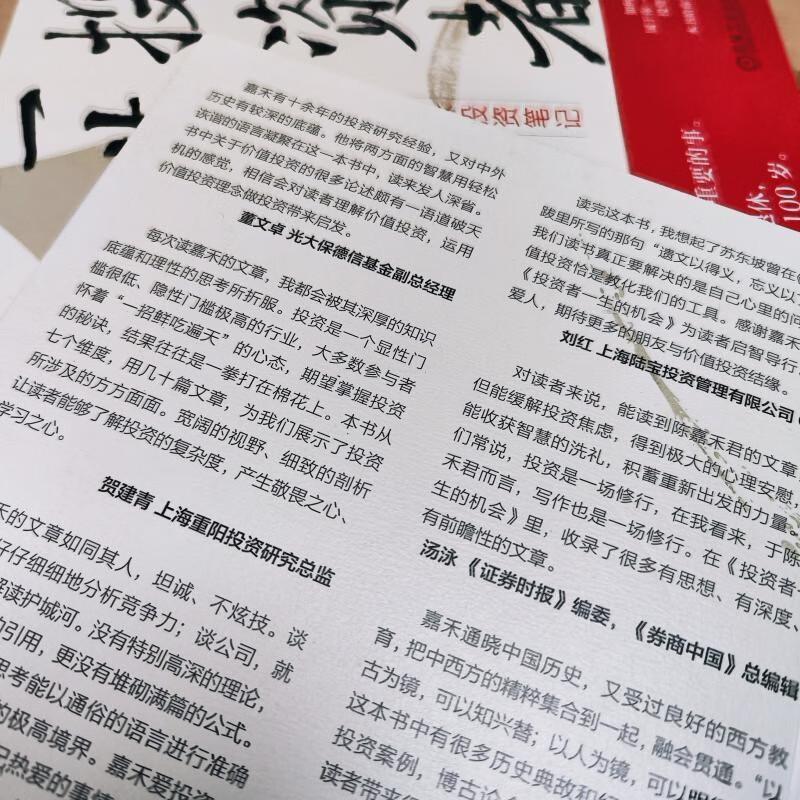 投资者
投资笔记
重要的事。
100岁。
嘉禾有十余年的投资研究经验，又对中外
历史有较深的底蕴。他将两方面的智慧用轻松
诙谐的语言凝聚在这一本书中，读来发人深省。
书中关于价值投资的很多论述颇有一语道破天
机的感觉，相信会对读者理解价值投资，运用
价值投资理念做投资带来启发。
董文卓 光大保德信基金副总经理
每次读嘉禾的文章，我都会被其深厚的知识
底蕴和理性的思考所折服。投资是一个显性门
槛很低、隐性门槛极高的行业，大多数参与者
怀着“一招鲜吃遍天”的心态，期望掌握投资
的秘诀，结果往往是一拳打在棉花上。本书从
七个维度，用几十篇文章，为我们展示了投资
所涉及的方方面面。宽阔的视野、细致的剖析
让读者能够了解投资的复杂度，产生敬畏之心、
学习之心。
贺建青 上海重阳投资研究总监
的文章如同其人，坦诚、不炫技。谈
仔细细地分析竞争力；谈公司，就
解读护城河。没有特别高深的理论，
的引用，更没有堆砌满篇的公式。
思考能以通俗的语言进行准确
的极高境界。嘉禾爱投资
热爱的事情
读完这本书，我想起了苏东坡曾在
陂里所写的那句“遗文以得义，忘义以
我们读书真正要解决的是自己心里的问
值投资恰是教化我们的工具。感谢嘉禾
《投资者一生的机会》为读者启智导行，
爱人，期待更多的朋友与价值投资结缘。
刘红 上海陆宝投资管理有限公司
对读者来说，能读到陈嘉禾君的文章，
但能缓解投资焦虑，得到极大的心理安慰，
能收获智慧的洗礼，积蓄重新出发的力量。
们常说，投资是一场修行，在我看来，于陈
禾君而言，写作也是一场修行。在《投资者一
生的机会》里，收录了很多有思想、有深度、
有前瞻性的文章。
汤泳 《证券时报》编委，《券商中国》总编辑
嘉禾通晓中国历史，又受过良好的西方教
育，把中西方的精粹集合到一起，融会贯通。“以
古为镜，可以知兴替；以人为镜，可以明
这本书中有很多历史典故和
投资案例，博古论
读者带来